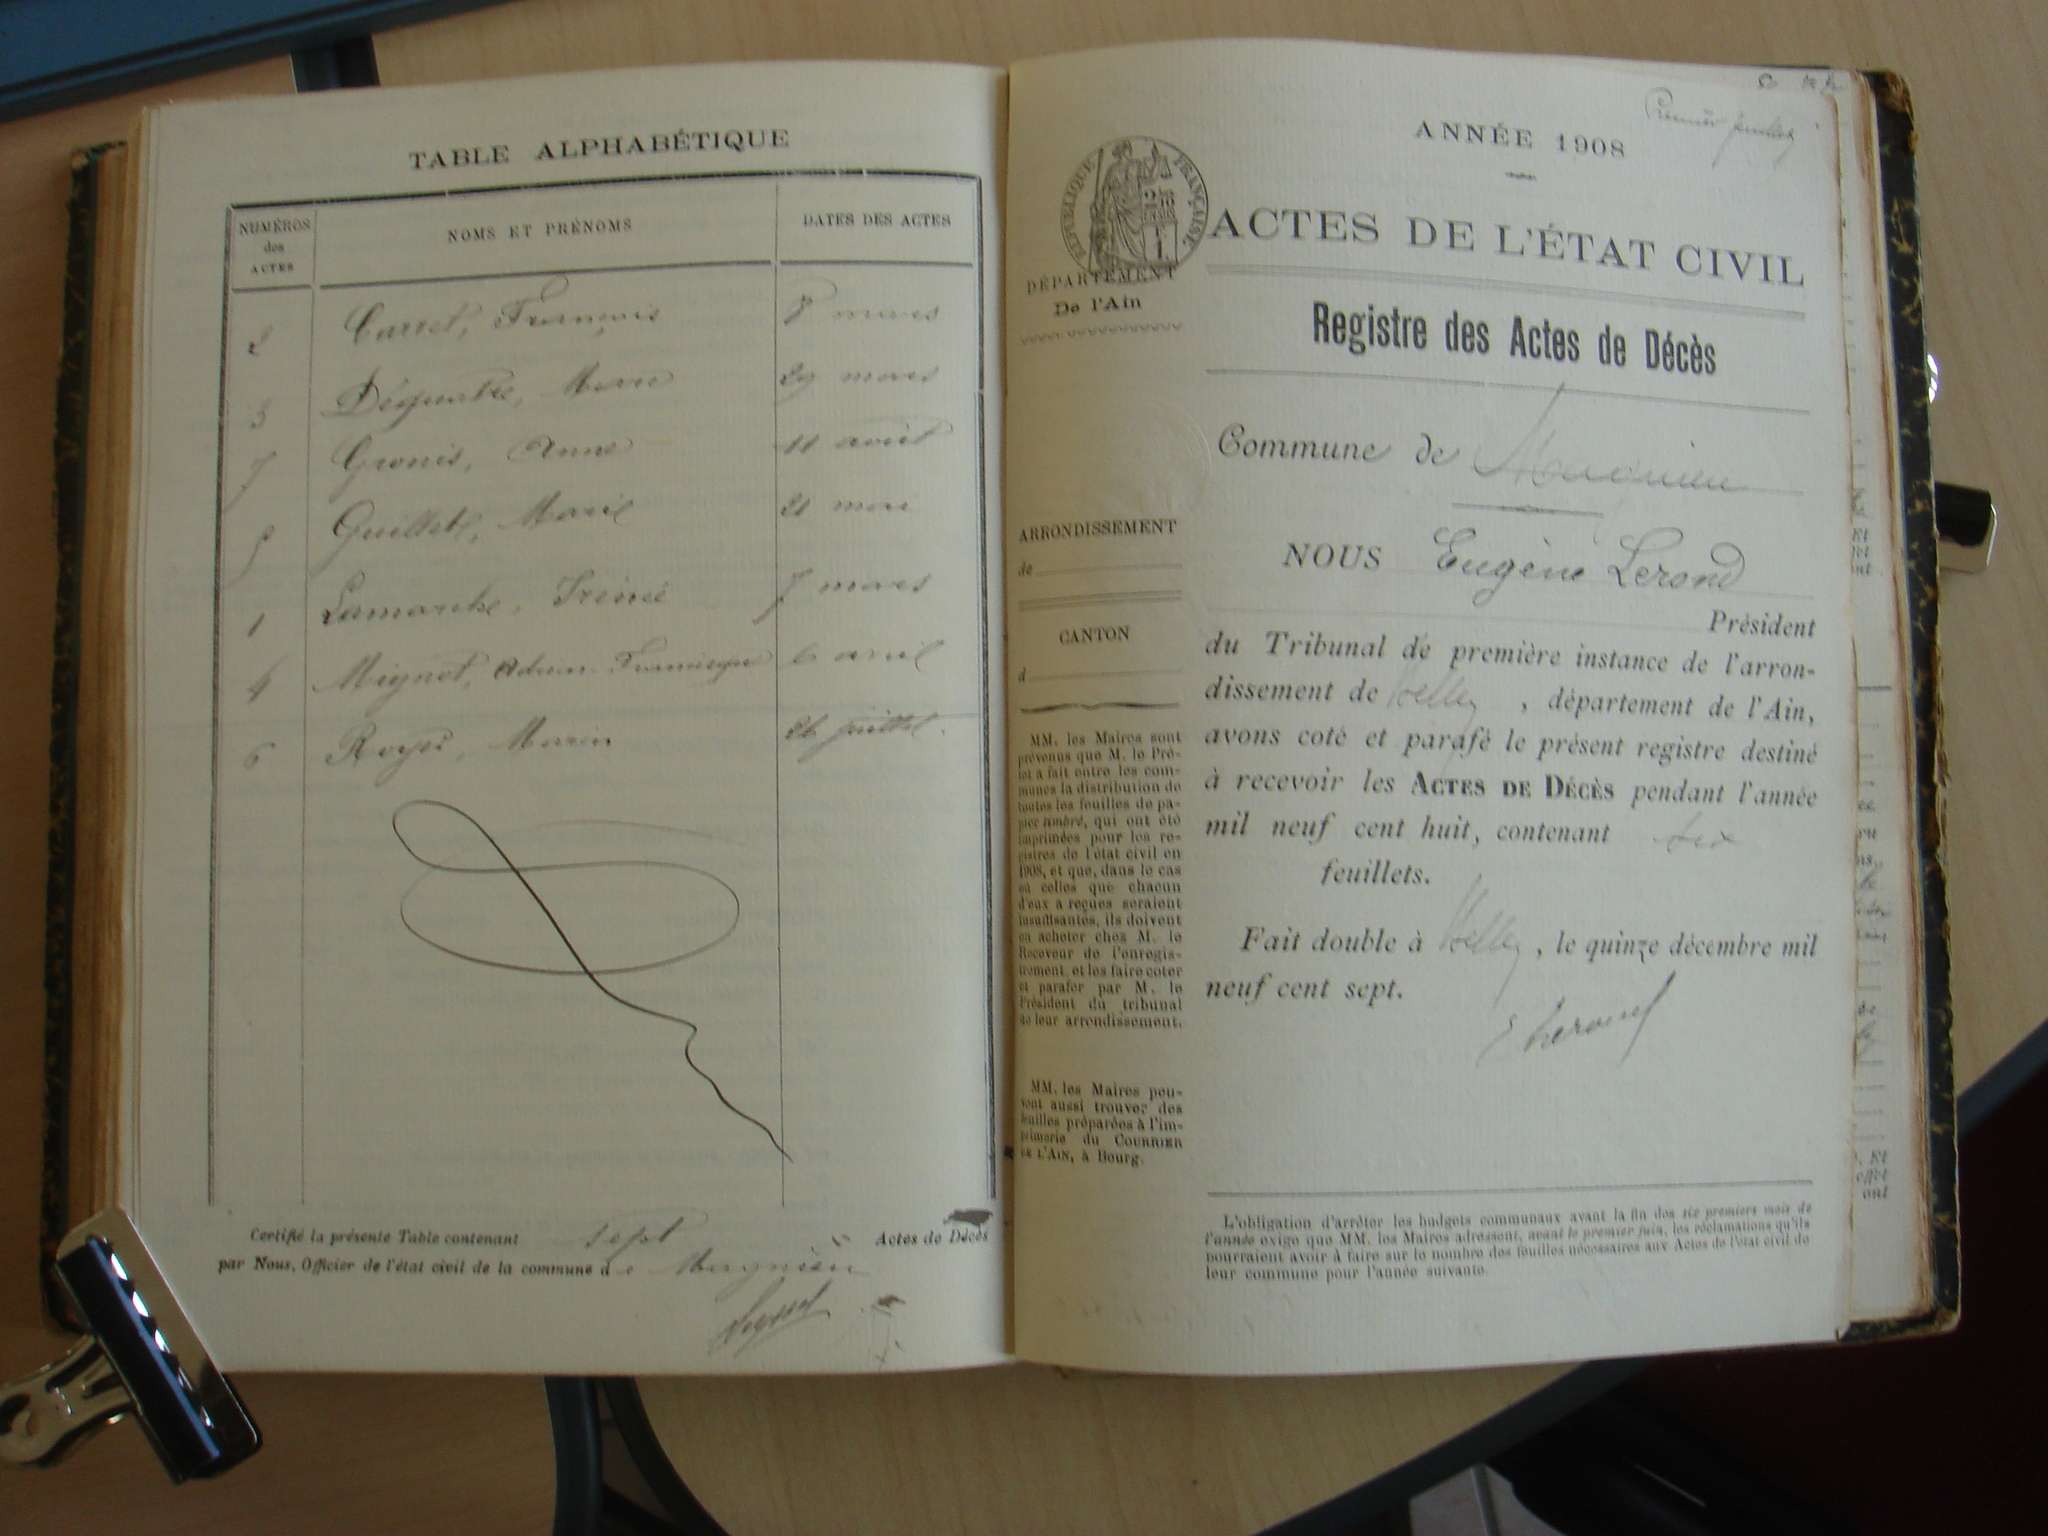 TABLE ALPHABÉTIQUE
NUMÉROS des ACTES
NOMS ET PRÉNOMS
DATES DES ACTES
2 Carrel, François 8 mars
3 Marie 29 mars
7 Anne 11 août
5 Marie 21 mai
1 Lamarche, Irénée 7 mars
4 Mignot, 6 avril
6 juillet
Certifié la présente Table contenant sept Actes de Décès
par Nous, Officier de l'état civil de la commune de Magnieu
Premier feuillet
ANNÉE 1908
RÉPUBLIQUE FRANÇAISE
ACTES DE L'ÉTAT CIVIL
DÉPARTEMENT
De l'Ain
Registre des Actes de Décès
Commune de
NOUS Eugène Lerond
Président
du Tribunal de première instance de l'arron-
dissement de Belley, département de l'Ain,
avons coté et parafé le présent registre destiné
à recevoir les ACTES DE DÉCÈS pendant l'année
mil neuf cent huit, contenant six
feuillets.
Fait double à Belley, le quinze décembre mil
neuf cent sept.
E Lerond
ARRONDISSEMENT
de
CANTON
d
MM. les Maires sont
prévenus que M. le Pré-
fet a fait entre les com-
munes la distribution de
toutes les feuilles de pa-
pier timbré, qui ont été
imprimées pour les re-
gistres de l'état civil en
1908, et que, dans le cas
où celles que chacun
d'eux a reçues seraient
insuffisantes, ils doivent
en acheter chez M. le
Receveur de l'enregis-
trement, et les faire coter
et parafer par M. le
Président du tribunal
de leur arrondissement.
MM. les Maires peu-
vent aussi trouver des
feuilles préparées à l'im-
primerie du COURRIER
DE L'AIN, à Bourg.
L'obligation d'arrêter les budgets communaux avant la fin des six premiers mois de
l'année exige que MM. les Maires adressent, avant le premier juin, les réclamations qu'ils
pourraient avoir à faire sur le nombre des feuilles nécessaires aux Actes de l'état civil de
leur commune pour l'année suivante.